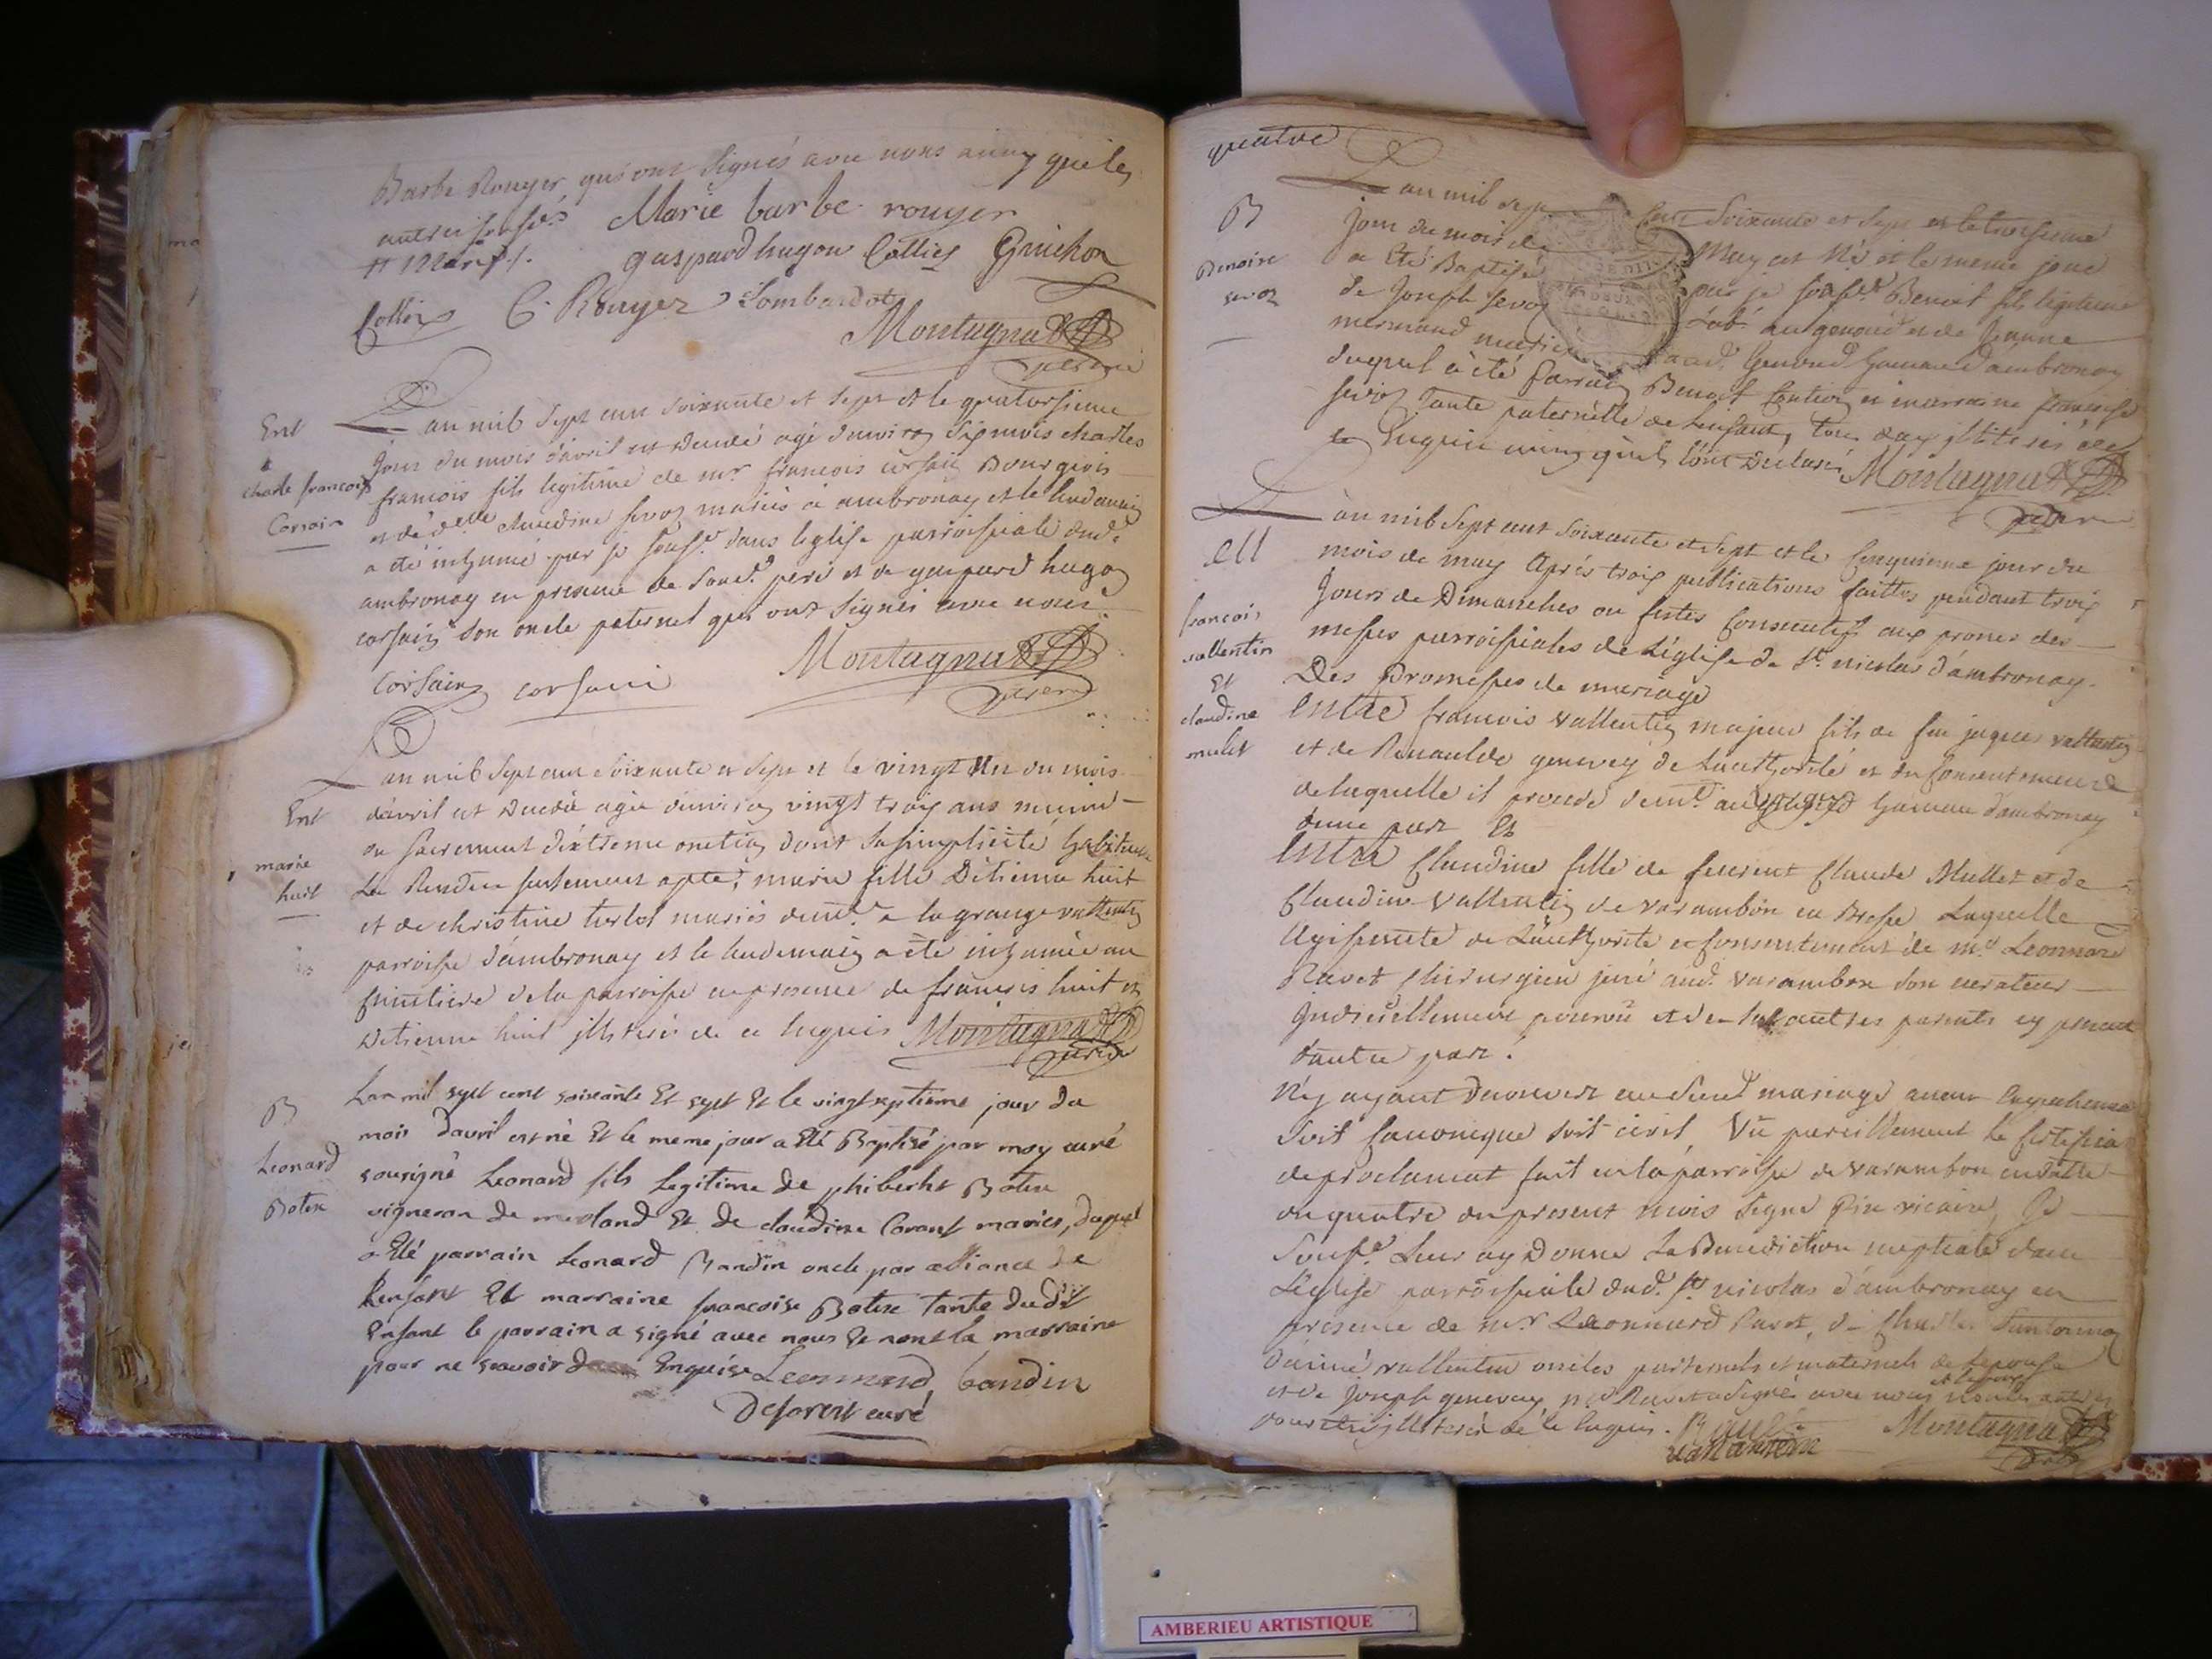 Barbe Rouyer, qui ont signés avec nous ainsy que les
autres sousés Marie barbe rouyer
gaspard hugon Collieg Guichon
C. Rouyer Lombardot
Montagnat
vicaire
Ent
charle francois
Corsain
L'an mil sept cent soixante et sept et le quatorsieme
jour du mois d'avril est decedé agé d'environ six mois charles
francois fils legitime de mr. francois corsain Bourgeois
et de delle claudine servoz mariés à ambronay et le lendemain
a été inhumé par je soussé. dans l'eglise parroissiale dud.
ambronay en presence de soud. pere et de gaspard hugon
corsain son oncle paternel qui ont signés avec nous.
corsain corsain Montagnat
vicaire
Ent
marie
huit
L'an mil sept cent soixante et sept et le vingt un du mois
d'avril est decedée agée d'environ vingt trois ans munie
du sacrement d'extreme onction dont sa simplicité habituelle
La Rendu seulement apte, marie fille D'étienne huit
et de christine mariés demt. a la grange vallentin
parroisse d'ambronay et le lendemain a été inhumée au
cimetiere de la parroisse en presence de francois huit et
D'etienne huit illiterés de ce enquis Montagnat
vicaire
B
Leonard
Boten
Lan mil sept cent soixante Et sept Et le vingt septieme jour du
mois davril est né Et le meme jour a Eté Baptisé par moy curé
sousigné Leonard fils Legitime de phibert Boten
vigneron de merland Et de claudine Corant mariés, duquel
a Eté parrain Leonard Bandin oncle par alliance de
Lenfant Et marraine francoise Boten tante dudit
Enfant le parrain a signé avec nous Et non la marraine
pour ne scavoir de Enquise Leonnard bandin
Deforest curé
quatre
B
Benoise
servoz
L'an mil sept cent Soixante et sept et le troisieme
jour du mois de May est Né et le meme jour
a Eté Baptisé par je soussé. Benoit fils legitime
de Joseph servoz Lab. au genoud et de Jeanne
mermand mariés aud. Genoud hameau d'ambronay
duquel a été Parrain Benoit et marraine francoise
servoz tante paternelle de L'enfant, tous deux illiterés de
ce Enquis ainsy qu'ils l'ont declarés Montagnat
vicaire
M
francois
vallentin
Et
claudine
mulet
L'an mil sept cent soixante et sept et le cinquieme jour du
mois de may après trois publications faittes pendant trois
jours de Dimanches ou festes consecutifs aux prones des
messes parroissiales de L'église de St. nicolas d'ambronay.
Des promesses de mariage
Entre francois vallentin majeur fils de feu jaques vallentin
et de Renaulde genevey de L'authorité et du consentement de
de laquelle il procede demt. au hameau d'ambronay
d'une part Et
Entre Claudine fille de Claude Mullet et de
Claudine Vallentin de varambon en Bresse Laquelle
Agissante de L'authorité et consentement de mr. Leonnard
Ravet chirurgien juré aud. varambon son curateur
judiciellement pourvû et de ses autres parents cy present
d'autre part.
N'y ayant decouvert au susd. mariage aucun empechement
soit canonique soit civil, Vû pareillement le certificat
de proclamat fait en la parroisse de varambon en datte
du quatre du present mois signé Pin vicaire, Je
soussé. Leur ay Donné La Benediction nuptiale dans
L'eglise parroissiale dud. St. nicolas d'ambronay en
presence de mr. Leonnard Ravet, de Charles
D'aimé vallentin oncles paternels et maternels de L'epouse
et de Joseph genevey mr. Ravet a signé avec nous
pour etre illiterés de ce enquis. Ravet Montagnat
vallanten vicaire
AMBERIEU ARTISTIQUE